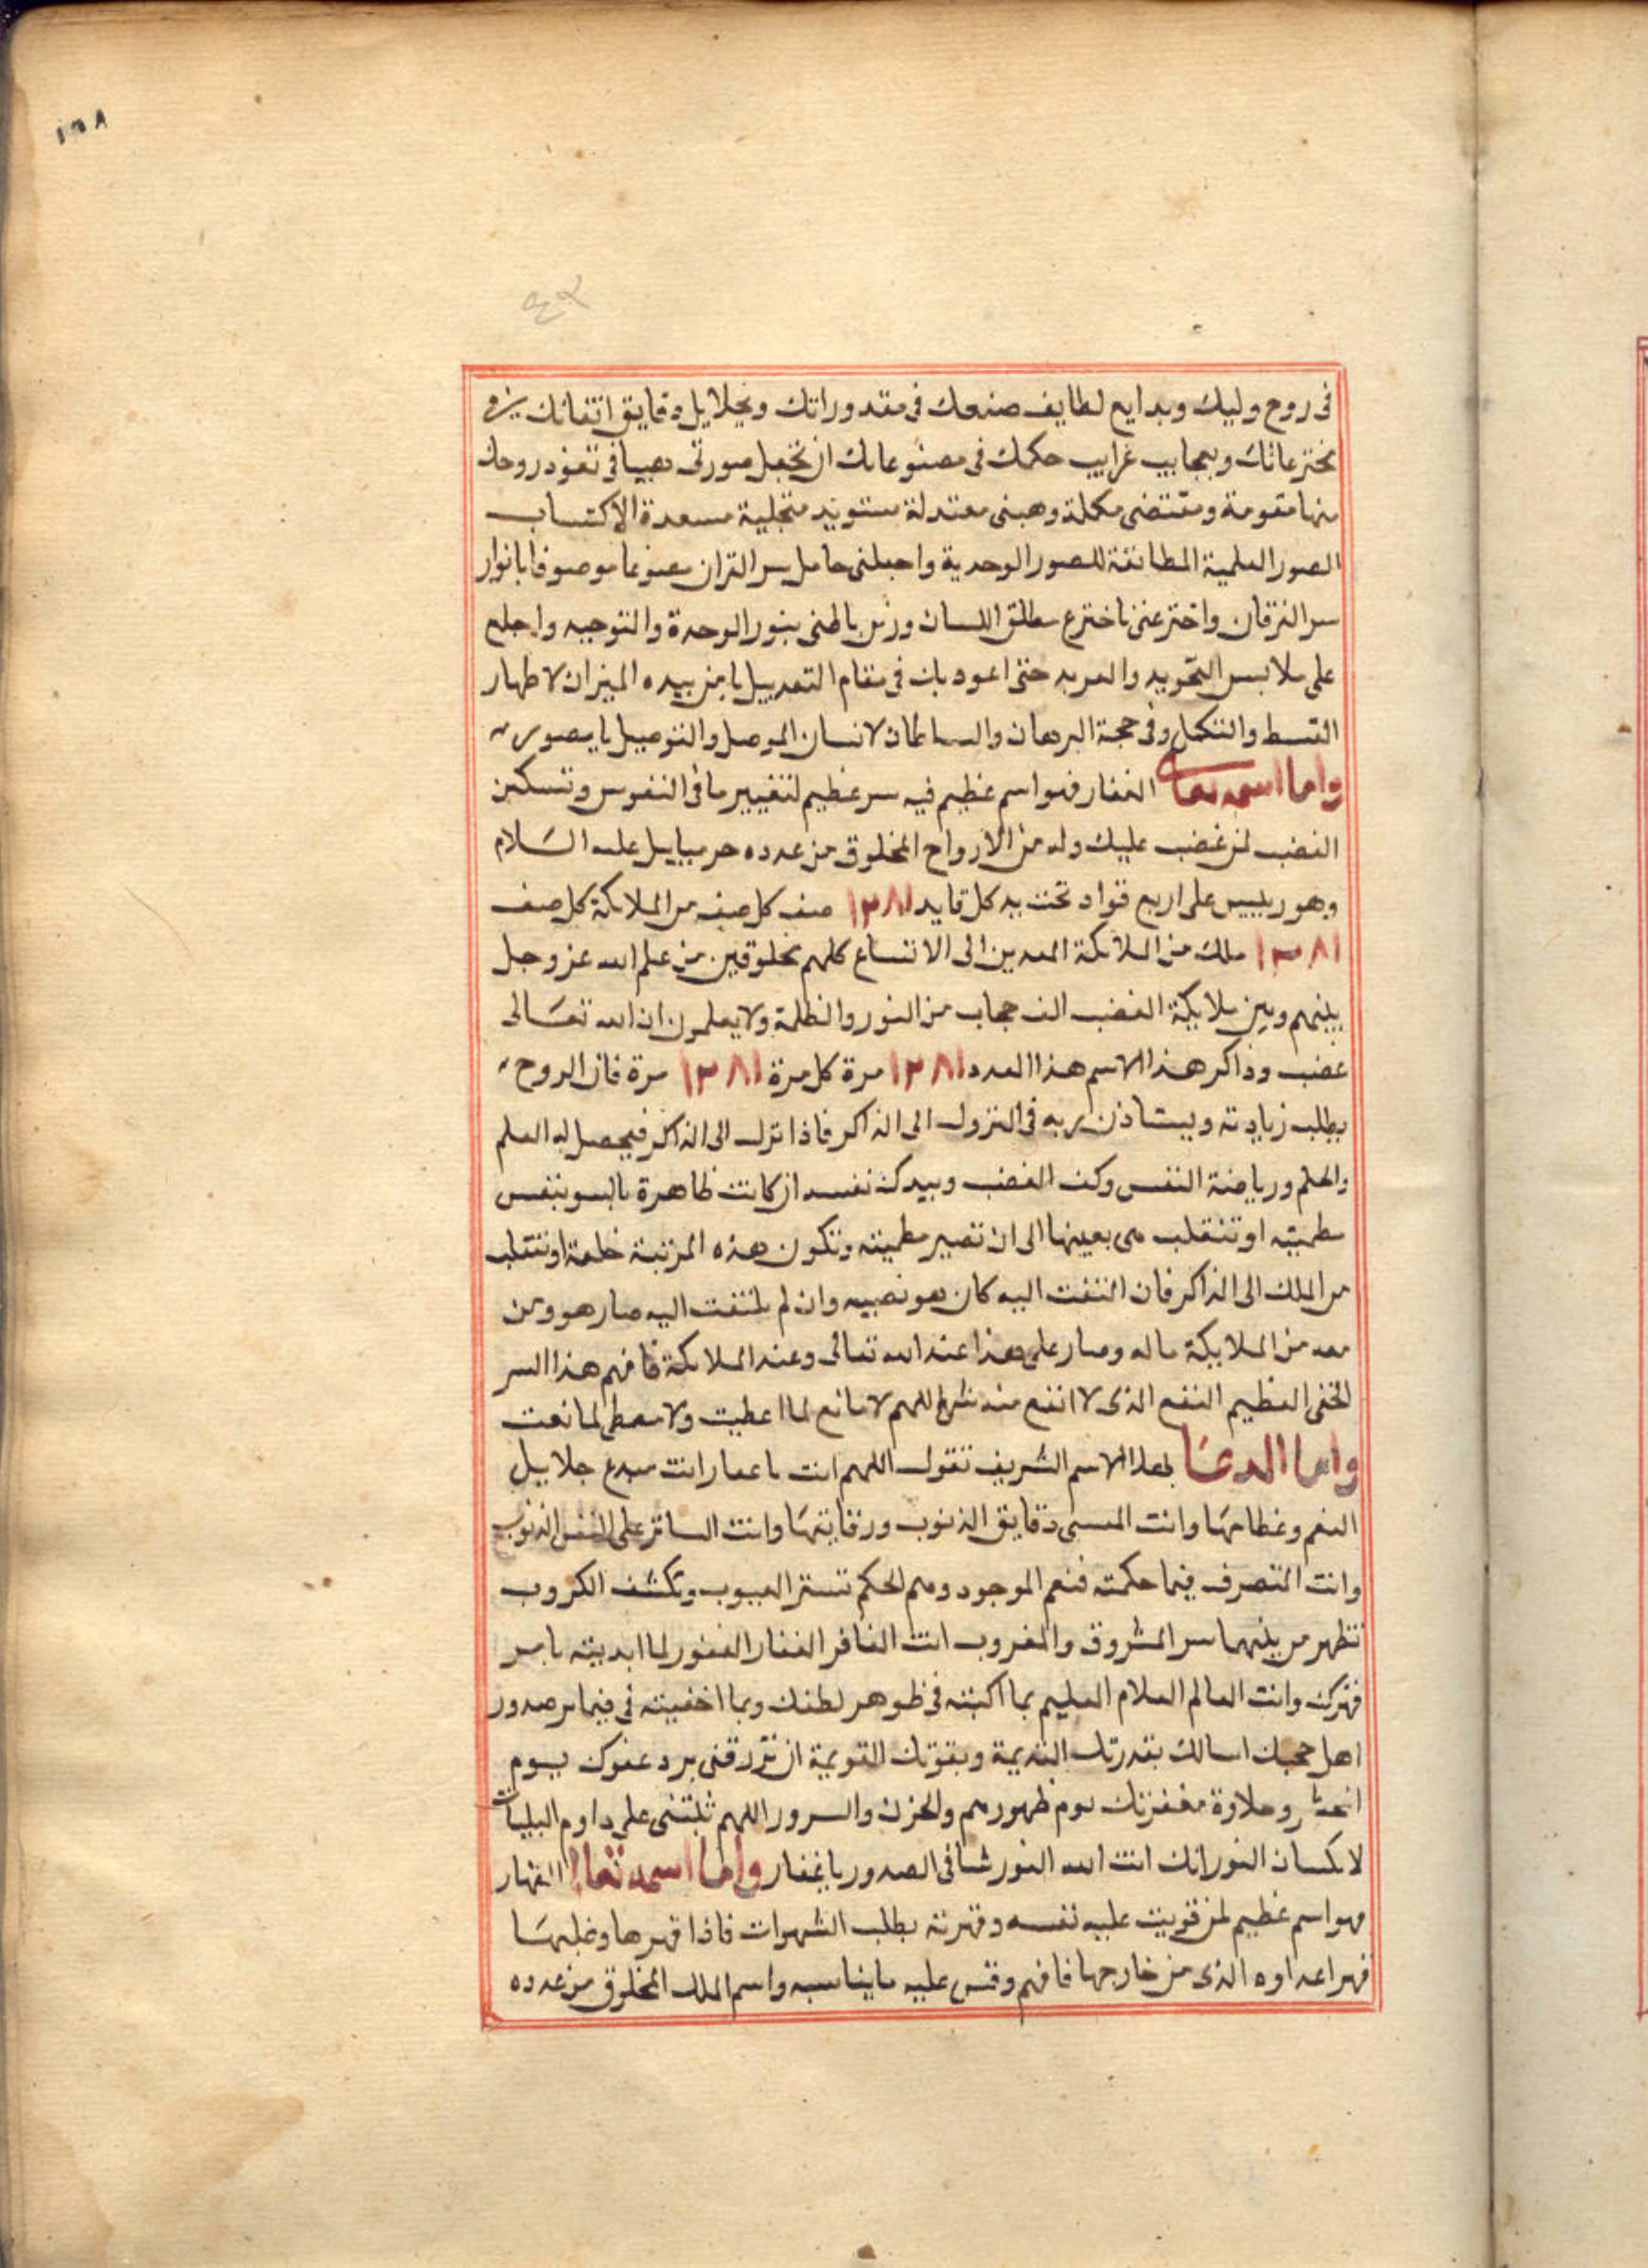 ١٥٨
٤٢
فى روح وليك وبدايع لطايف صنعك فى مقدوراتك وبجلايل دقايق اتقانك
مخترعاتك وبعجايب غرايب حكمك فى مصنوعاتك ان تجعل صورتى فى تعود روحك
منها مقومة ومقتضى مكملة وهبنى معتدلة متجلية مسعدة الاكتساب
الصور العلمية المطابقة للصور الوحدية واجعلنى حامل سر القران موصوفا بانوار
سر الفرقان واخترعنى باختراع مطلق اللسان وزين باطنى بنور الوحدة والتوجيه واخلع
على ملابس التجريد حتى اعود بك فى مقام التعديل يا من بيده الميزان لاظهار
القسط والتكمل وفى حجة البرهان والسلطان لانسان الموصل والتوصيل يا مصور
واما اسمه تعالى الغفار فهو اسم عظيم فيه سر عظيم لتغيير ما فى النفوس وتسكين
الغضب لمن غضب عليك وله من الارواح المخلوق من عدده عليه السلام
وهو رييس على اربع قواد تحت يد كل قايد ١٢٨١ صف كل صف من الملائكة كل صف
١٢٨١ ملك من الملائكة الى الاتساع كلهم مخلوقين من علم الله عز وجل
بينهم وبين ملايكة الغضب الف حجاب من النور والظلمة ولا يعلمون ان الله تعالى
غضب وذاكر هذا الاسم هذا العدد ١٢٨١ مرة كل مرة ١٢٨١ مرة فان الروح
يطلب زيادته ويستاذن ربه فى النزول الى الذاكر فاذا نزل الى الذاكر فيحصل له العلم
والحلم ورياضة النفس وكف الغضب نفسه ان كانت ظاهرة بالسو بنفس
مطمينه او تنقلب هى بعينها الى ان تصير مطمينه وتكون هذه المرتبة خلعة او تنتقلب
من الملك الى الذاكر فان التفت اليه كان هو نصيبه وان لم يلتفت اليه صار هو ومن
معه من الملايكة ماله وصار على هذا عند الله تعالى وعند الملائكة فافهم هذا السر
الخفى العظيم النفع الذى لا انفع منه اللهم لا مانع لما اعطيت ولا معطى لما نعت
واما الدعا بهذا الاسم الشريف تقول اللهم انت يا غفار انت مبدع جلايل
النعم وعظامها وانت دقايق الذنوب ورقايتها وانت الساتر على النفس الذنوب
وانت المتصرف فيما حكمته فنعم الموجود تستر العيوب وتكشف الكروب
تظهر من بينهما سر الشروق والغروب انت الغافر الغفار الغفور لما ابديته يا سر
قهرك وانت العالم العلام العليم بما اكبته فى ظوهر لطفك وبما اخفيته فى فيما بر صدور
اهل حجبك اسالك بقدرتك القديمة وبقوتك القويمة ان ترزقنى برد عفوك يوم
وحلاوة مغفرتك يوم ظهور والحزن والسرور اللهم ثبتنى على داوم البليات
النور انك انت الله النور شافى الصدور يا غفار واما اسمه تعالى القهار
فهو اسم عظيم لمن قويت عليه نفسه وقهرته بطلب الشهوات فاذا قهرها وغلبها
قهر اعداوه الذى من خارجها فافهم وقس عليه ما يناسبه واسم الملك المخلوق من عدده